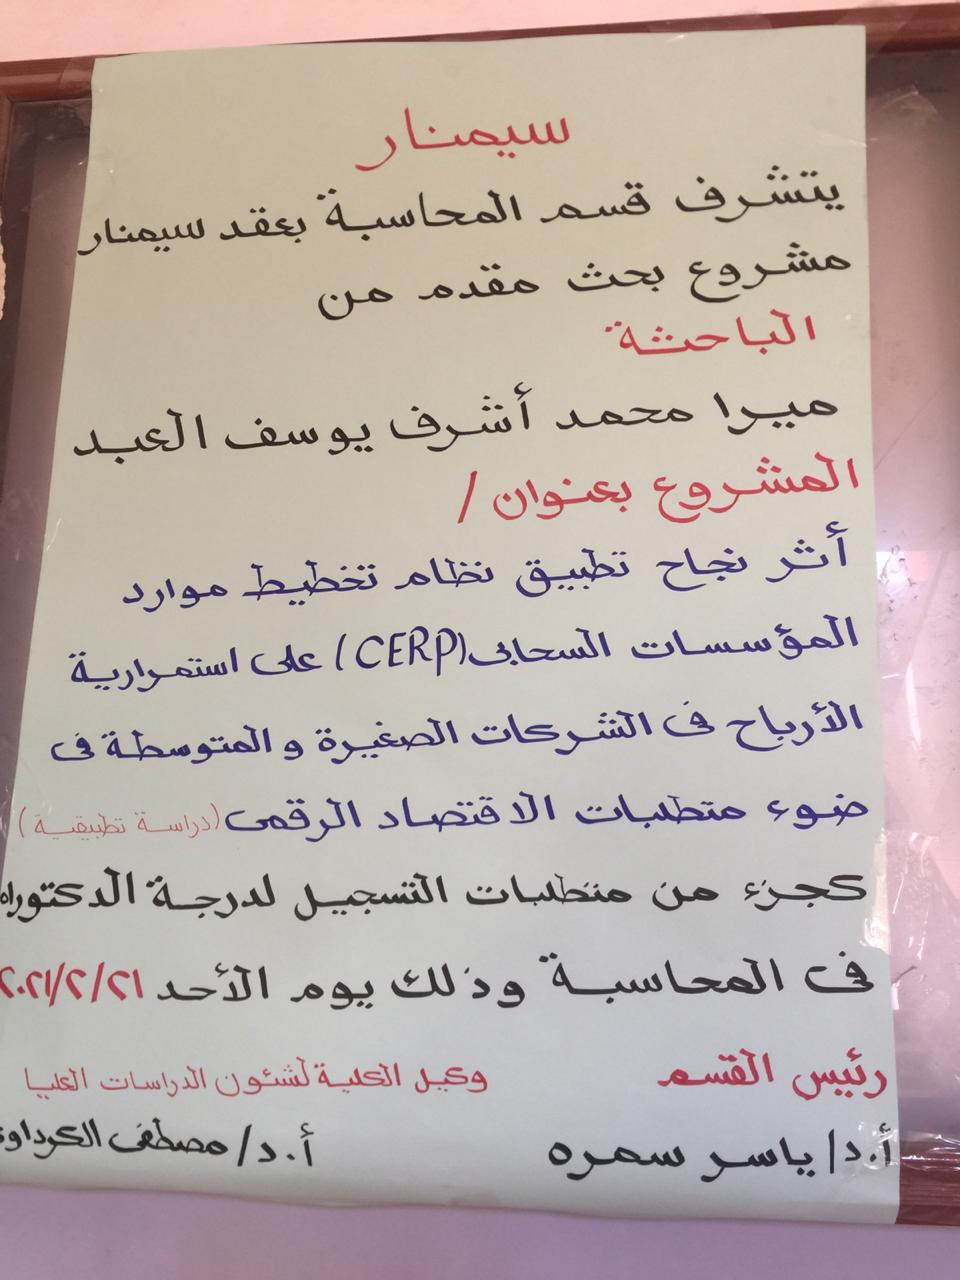 سيمنار
يتشرف قسم المحاسبة بعقد سيمنار
مشروع بحث مقدم من
الباحثة
ميرا محمد أشرف يوسف العبد
المشروع بعنوان /
أثر نجاح تطبيق نظام تخطيط موارد
المؤسسات السحابى (CERP) على استمرارية
الأرباح فى الشركات الصغيرة و المتوسطة فى
ضوء متطلبات الاقتصاد الرقمى (دراسة تطبيقية)
كجزء من متطلبات التسجيل لدرجة الدكتوراه
فى المحاسبة وذلك يوم الأحد ٢٠٢١/٢/٢١
رئيس القسم وكيل الكلية لشئون الدراسات العليا
أ.د/ ياسر سمره أ.د/ مصطفى الكرداوى